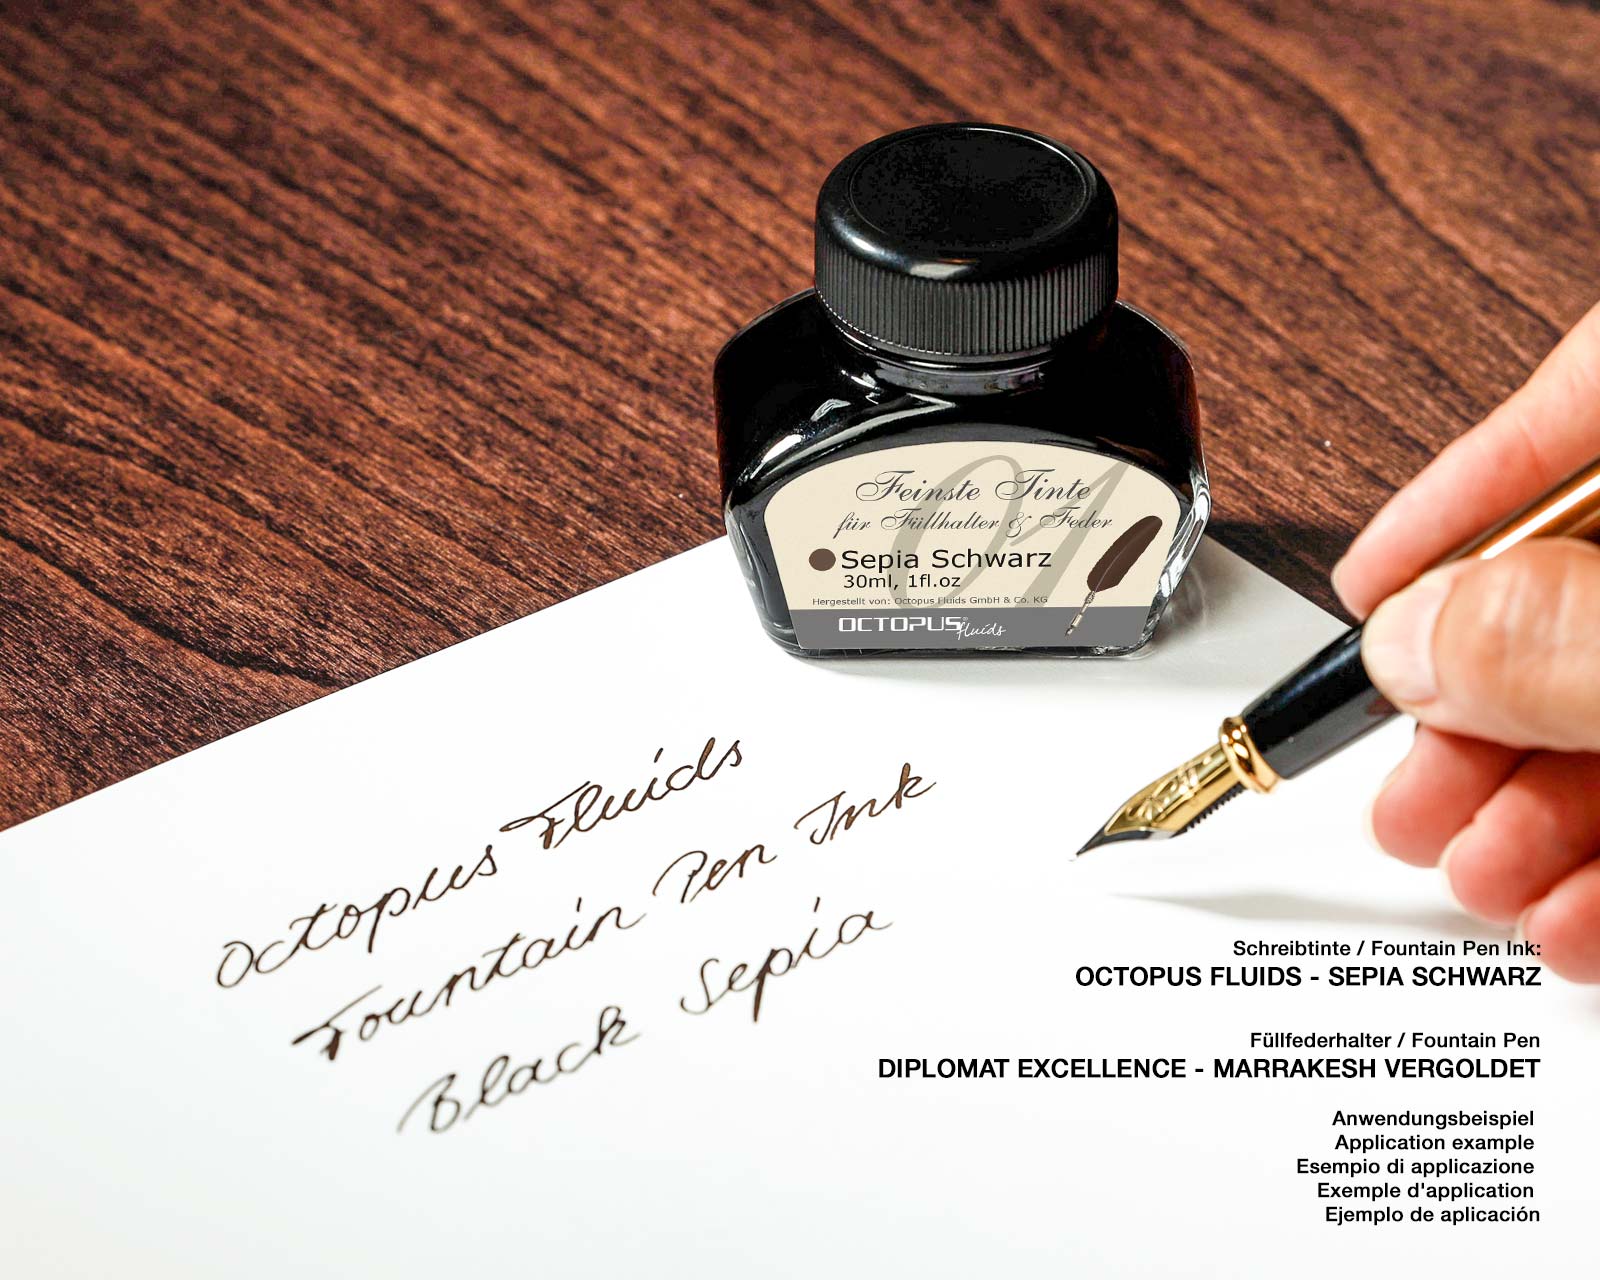 Feinste Tinte
für Füllhalter & Feder
01
Sepia Schwarz
30ml, 1fl.oz
Hergestellt von: Octopus Fluids GmbH & Co. KG
OCTOPUS® fluids
Octopus Fluids
Fountain Pen Ink
Black Sepia
Schreibtinte / Fountain Pen Ink:
OCTOPUS FLUIDS - SEPIA SCHWARZ
Füllfederhalter / Fountain Pen
DIPLOMAT EXCELLENCE - MARRAKESH VERGOLDET
Anwendungsbeispiel
Application example
Esempio di applicazione
Exemple d'application
Ejemplo de aplicación